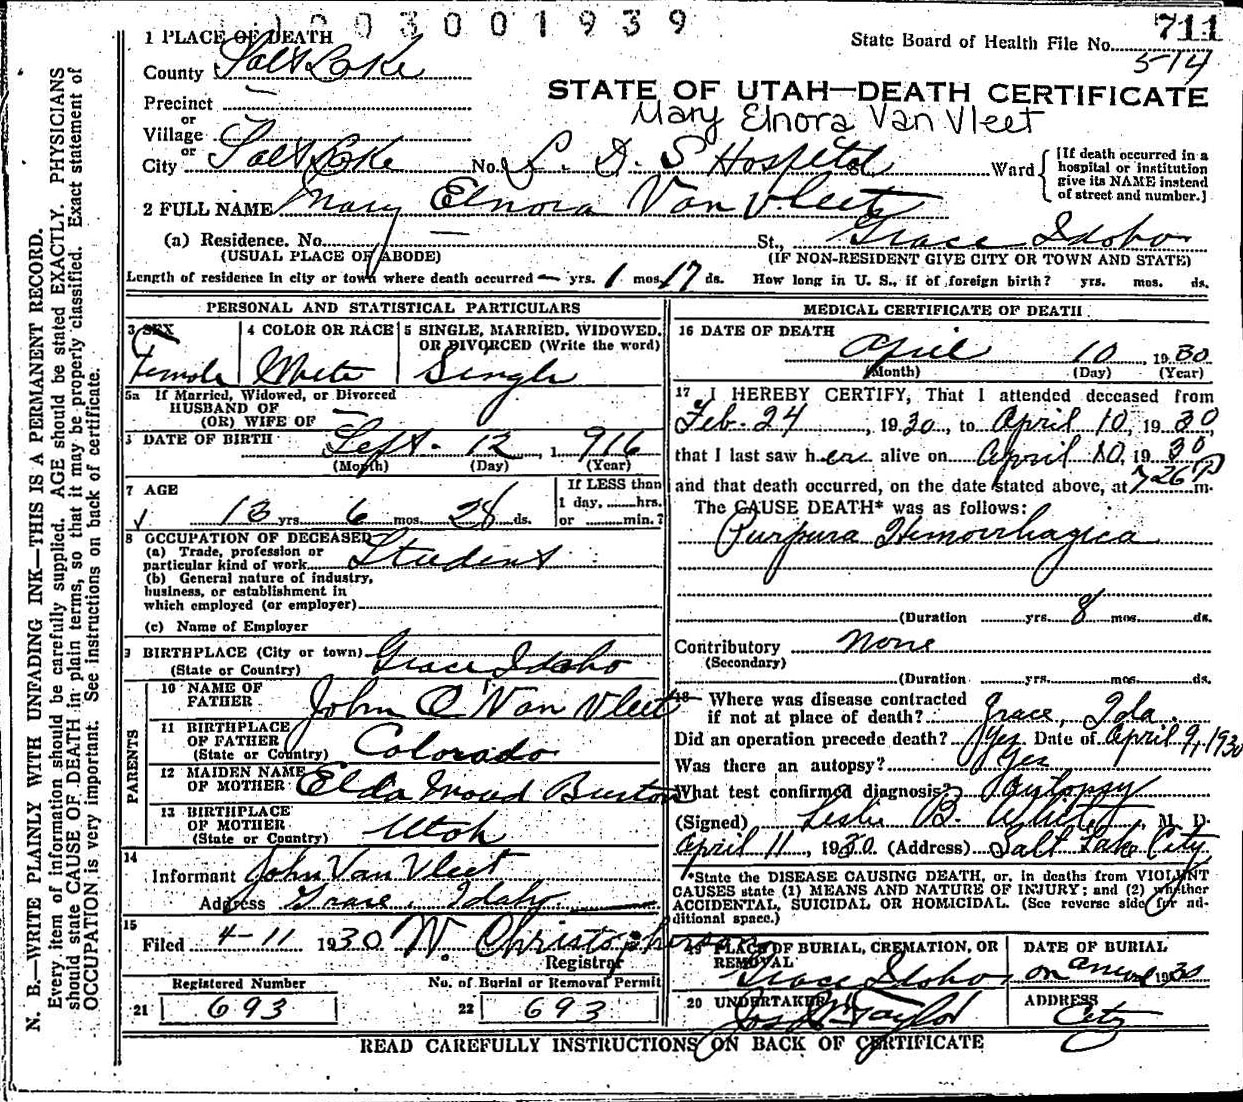 003001939
711
1 PLACE OF DEATH
State Board of Health File No.
514
County Salt Lake
STATE OF UTAH—DEATH CERTIFICATE
Mary Elnora Van Vleet
Precinct —
or
Village
or
City Salt Lake No. L. D. S Hospital St. Ward
[If death occurred in a hospital or institution give its NAME instead of street and number.]
2 FULL NAME Mary Elnora Van Vleet
(a) Residence. No. — St., Grace Idaho
(USUAL PLACE OF ABODE) (IF NON-RESIDENT GIVE CITY OR TOWN AND STATE)
Length of residence in city or town where death occurred — yrs. 1 mos. 17 ds. How long in U. S., if of foreign birth? yrs. mos. ds.
PERSONAL AND STATISTICAL PARTICULARS
3 SEX 4 COLOR OR RACE 5 SINGLE, MARRIED, WIDOWED, OR DIVORCED (Write the word)
Female White Single
5a If Married, Widowed, or Divorced
HUSBAND OF
(OR) WIFE OF —
DATE OF BIRTH Sept. 12, 1916
(Month) (Day) (Year)
7 AGE
If LESS than
1 day, hrs.
or min.?
13 yrs. 6 mos. 28 ds.
8 OCCUPATION OF DECEASED
(a) Trade, profession or
particular kind of work Student
(b) General nature of industry,
business, or establishment in
which employed (or employer)
(c) Name of Employer
9 BIRTHPLACE (City or town) Grace Idaho
(State or Country)
PARENTS
10 NAME OF
FATHER John O. Van Vleet
11 BIRTHPLACE
OF FATHER Colorado
(State or Country)
12 MAIDEN NAME
OF MOTHER Elda Burton
13 BIRTHPLACE
OF MOTHER Utah
(State or Country)
14
Informant John Van Vleet
Address Grace, Idaho
15
Filed 4-11 1930 W. Christopherson
Registrar
Registered Number No. of Burial or Removal Permit
21 693 22 693
MEDICAL CERTIFICATE OF DEATH
16 DATE OF DEATH
April 10, 1930
(Month) (Day) (Year)
17 I HEREBY CERTIFY, That I attended deceased from
Feb. 24, 1930, to April 10, 1930,
that I last saw her alive on April 10, 1930
and that death occurred, on the date stated above, at 726 P m.
The CAUSE DEATH* was as follows:
Purpura Hemorrhagica
(Duration yrs. 8 mos. ds.
Contributory None
(Secondary)
(Duration yrs. mos. ds.
18 Where was disease contracted
if not at place of death? Grace, Ida.
Did an operation precede death? Yes Date of April 9, 1930
Was there an autopsy? Yes
What test confirmed diagnosis? Autopsy
(Signed) Leslie B. White, M. D.
April 11, 1930. (Address) Salt Lake City
*State the DISEASE CAUSING DEATH, or, in deaths from VIOLENT
CAUSES state (1) MEANS AND NATURE OF INJURY; and (2) whether
ACCIDENTAL, SUICIDAL OR HOMICIDAL. (See reverse side for ad-
ditional space.)
19 PLACE OF BURIAL, CREMATION, OR REMOVAL DATE OF BURIAL
Grace Idaho, on arrival 1930
20 UNDERTAKER ADDRESS
Jos. Wm. Taylor City
READ CAREFULLY INSTRUCTIONS ON BACK OF CERTIFICATE
N. B.—WRITE PLAINLY WITH UNFADING INK—THIS IS A PERMANENT RECORD.
Every item of information should be carefully supplied. AGE should be stated EXACTLY. PHYSICIANS
should state CAUSE OF DEATH in plain terms, so that it may be properly classified. Exact statement of
OCCUPATION is very important. See instructions on back of certificate.